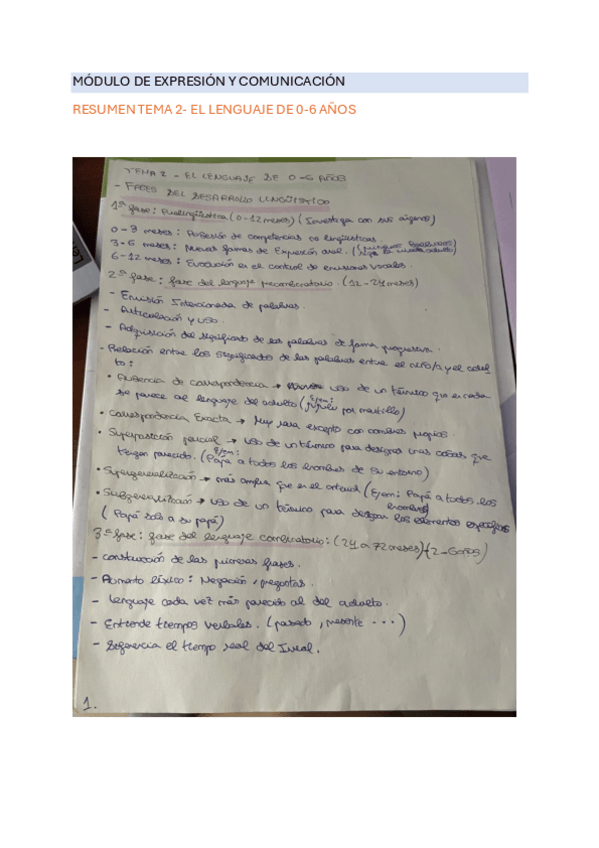 MÓDULO DE EXPRESIÓN Y COMUNICACIÓN
RESUMEN TEMA 2- EL LENGUAJE DE 0-6 AÑOS
TEMA 2 - EL LENGUAJE DE 0-6 AÑOS
- FASES DEL DESARROLLO LINGÜÍSTICO
1ª fase: Prelingüística (0-12 meses) (Investiga con sus órganos)
0-3 meses: de competencias no lingüísticas.
3-6 meses: Nuevas formas de Expresión oral.
6-12 meses: Evolución en el control de emisiones vocales.
2ª fase: fase del lenguaje precombinatorio. (12-24 meses)
- Emisión Intencionada de palabras.
- Articulación y uso.
- Adquisición del significado de las palabras de forma progresiva.
- Relación entre los significados de las palabras entre el niño/a y el adul
to:
• Ausencia de correspondencia → uso de un término que en nada
se parece al lenguaje del adulto (Ejem: por martillo)
• Correspondencia Exacta → Muy rara excepto con nombres propios.
• Superposición parcial → Uso de un término para designar unas cosas que
tengan parecido. (Ejem: Papá a todos los hombres de su entorno)
• Supergeneralización → más amplia que en el (Ejem: Papá a todos los
hombres)
• Subgeneralización → Uso de un término para designar los elementos específicos
(Papá solo a su papá)
3ª fase: fase del lenguaje combinatorio: (24 a 72 meses) (2-6 años)
- construcción de las primeras frases.
- Aumento léxico: Negación, preguntas.
- Lenguaje cada vez más parecido al del adulto.
- Entiende tiempos verbales. (pasado, presente ...)
- Diferencia el tiempo real del Irreal.
1.